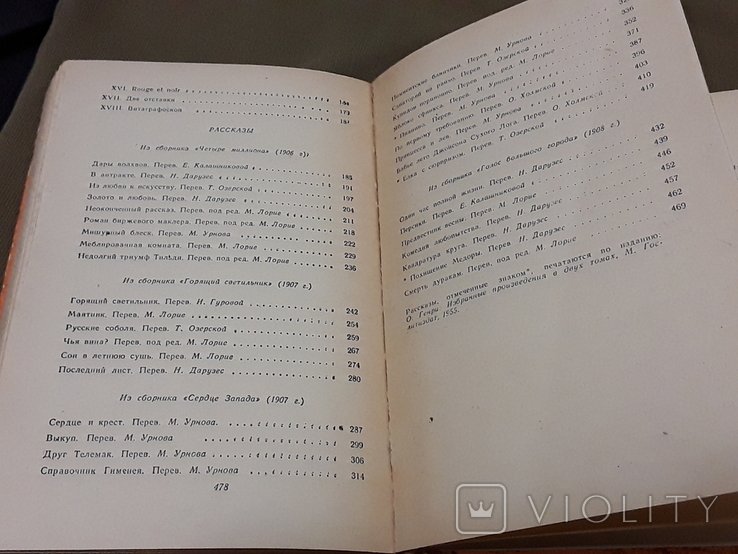 XVI. Rouge et noir
XVII. Две отставки 173
XVIII. Витаграфоскоп 187
РАССКАЗЫ
Из сборника «Четыре миллиона» (1906 г)
Дары волхвов. Перев. Е. Калашниковой 185
В антракте. Перев. Н. Дарузес 191
Из любви к искусству. Перев. Т. Озерской 197
Золото и любовь. Перев. Н. Дарузес 204
Неоконченный рассказ. Перев. под ред. М. Лорие 211
Роман биржевого маклера. Перев. под ред. М. Лорие 218
Мишурный блеск. Перев. М. Урнова 222
Меблированная комната. Перев. М. Лорие 229
Недолгий триумф Тильди. Перев. под ред. М. Лорие 236
Из сборника «Горящий светильник» (1907 г.)
Горящий светильник. Перев. И. Гуровой 242
Маятник. Перев. М. Лорие 254
Русские соболя. Перев. Т. Озерской 259
Чья вина? Перев. под ред. М. Лорие 267
Сон в летнюю сушь. Перев. М. Лорие 274
Последний лист. Перев. Н. Дарузес 280
Из сборника «Сердце Запада» (1907 г.)
Сердце и крест. Перев. М. Урнова. 287
Выкуп. Перев. М. Урнова 299
Друг Телемак. Перев. М. Урнова 306
Справочник Гименея. Перев. М. Урнова 314
478
Пимиентские блинчики. Перев. М. Урнова
Санаторий на ранчо. Перев. Т. Озерской 336
Купидон порционно. Перев. под ред. М. Лорие 352
Яблоко сфинкса. Перев. М. Урнова 371
* Пианино. Перев. М. Урнова 387
По первому требованию. Перев. О. Холмской 396
Принцесса и пума. Перев. М. Урнова 403
Бабье лето Джонсона Сухого Лога. Перев. О. Холмской 410
* Елка с сюрпризом. Перев. Т. Озерской 419
Из сборника «Голос большого города» (1908 г.)
Один час полной жизни. Перев. Н. Дарузес 432
Персики. Перев. Е. Калашниковой 439
Предвестник весны. Перев. М. Лорие 446
Комедия любопытства. Перев. Н. Дарузес 452
Квадратура круга. Перев. Н. Дарузес 457
* Похищение Медоры. Перев. Н. Дарузес 462
Смерть дуракам. Перев. под ред. М. Лорие 469
Рассказы, отмеченные знаком*, печатаются по изданию:
О. Генри. Избранные произведения в двух томах, М. Гос-
литиздат, 1955.
VIOLITY